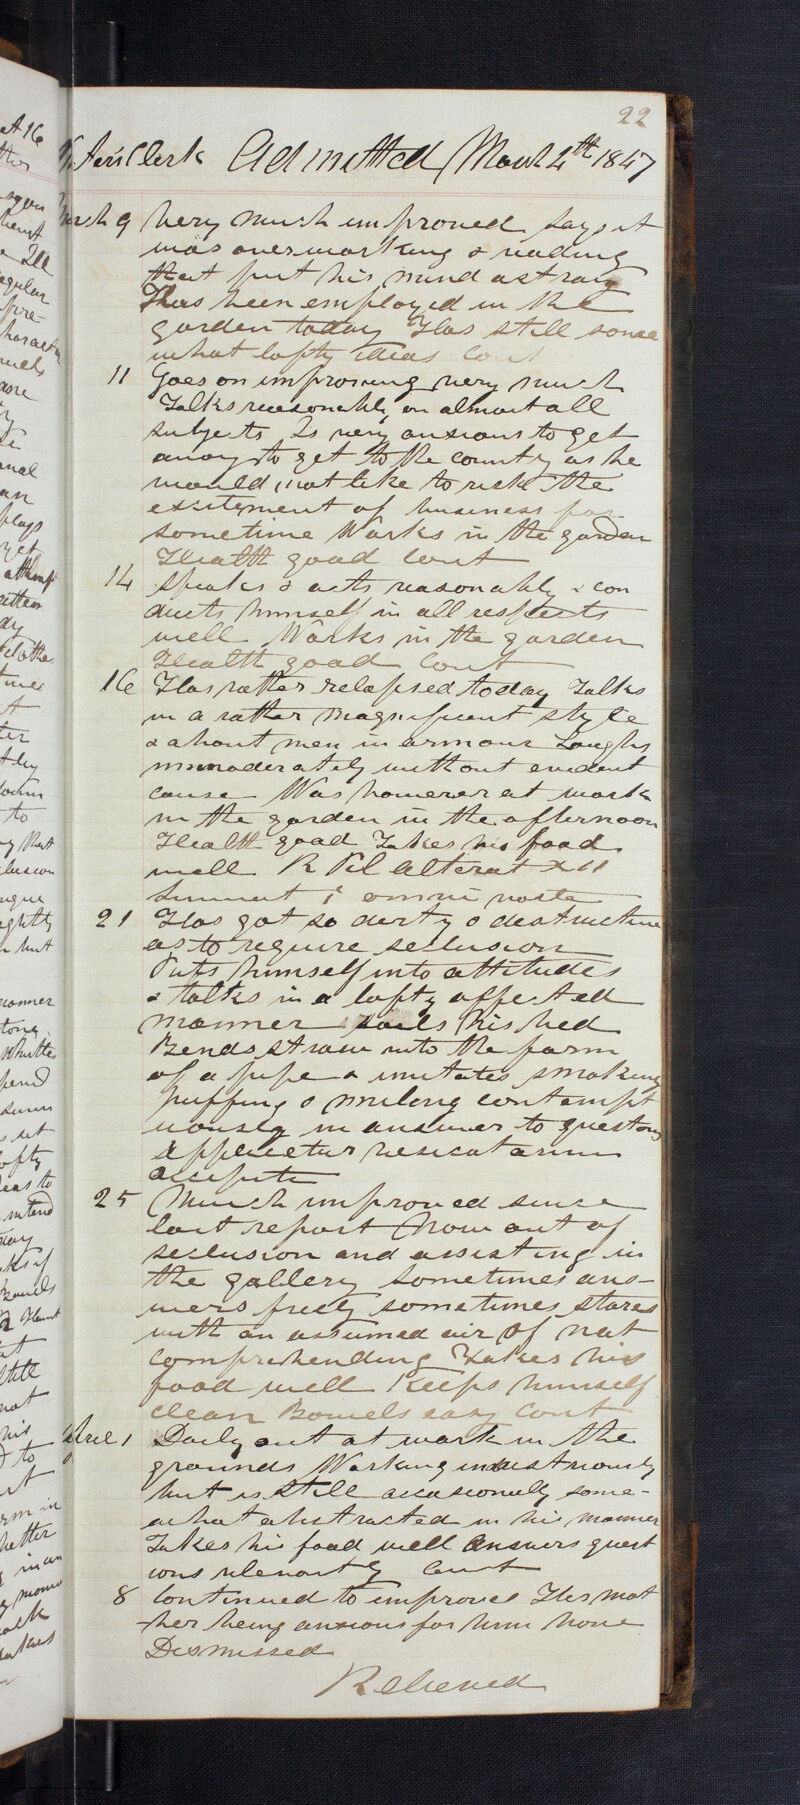 22
Clerk Admitted March 4th 1847
March 9 Very much improved says it
was overworking & reading
that put his mind astray
Has been employed in the
garden today Has still some
what lofty ideas Cont
11 Goes on improving very much
Talks reasonably on almost all
subjects Is very anxious to get
away to get to the country as he
would not like to risk the
excitement of business for
sometime Works in the garden
Health good Cont
14 Speaks & acts reasonably & con
ducts himself in all respects
well Works in the garden
Health good Cont
16 Has rather relapsed today Talks
in a rather magnificent style
& about men in armour Laughs
immoderately without evident
cause Was however at work
in the garden in the afternoon
Health good Takes his food
well R Pil alterat XII
Sumat i omni nocte
21 Has got so dirty & destructive
as to require seclusion
Puts himself into attitudes
& talks in a lofty affected
manner soils his bed
Bends straw into the form
of a pipe & imitates smoking
puffing & smiling contempt
uously in answer to questions
Applicetur vesicatorium
occipite
25 Much improved since
last report Now out of
seclusion and assisting in
the gallery Sometimes ans-
wers freely sometimes stares
with an assumed air of not
comprehending Takes his
food well Keeps himself
clean Bowels easy Cont
April 1 Daily out at work in the
grounds Working industriously
but is still occasionally some-
what abstracted in his manner
Takes his food well Answers quest
ions Cont
8 Continued to improve His mot
-her being anxious for him home
Dismissed
Relieved